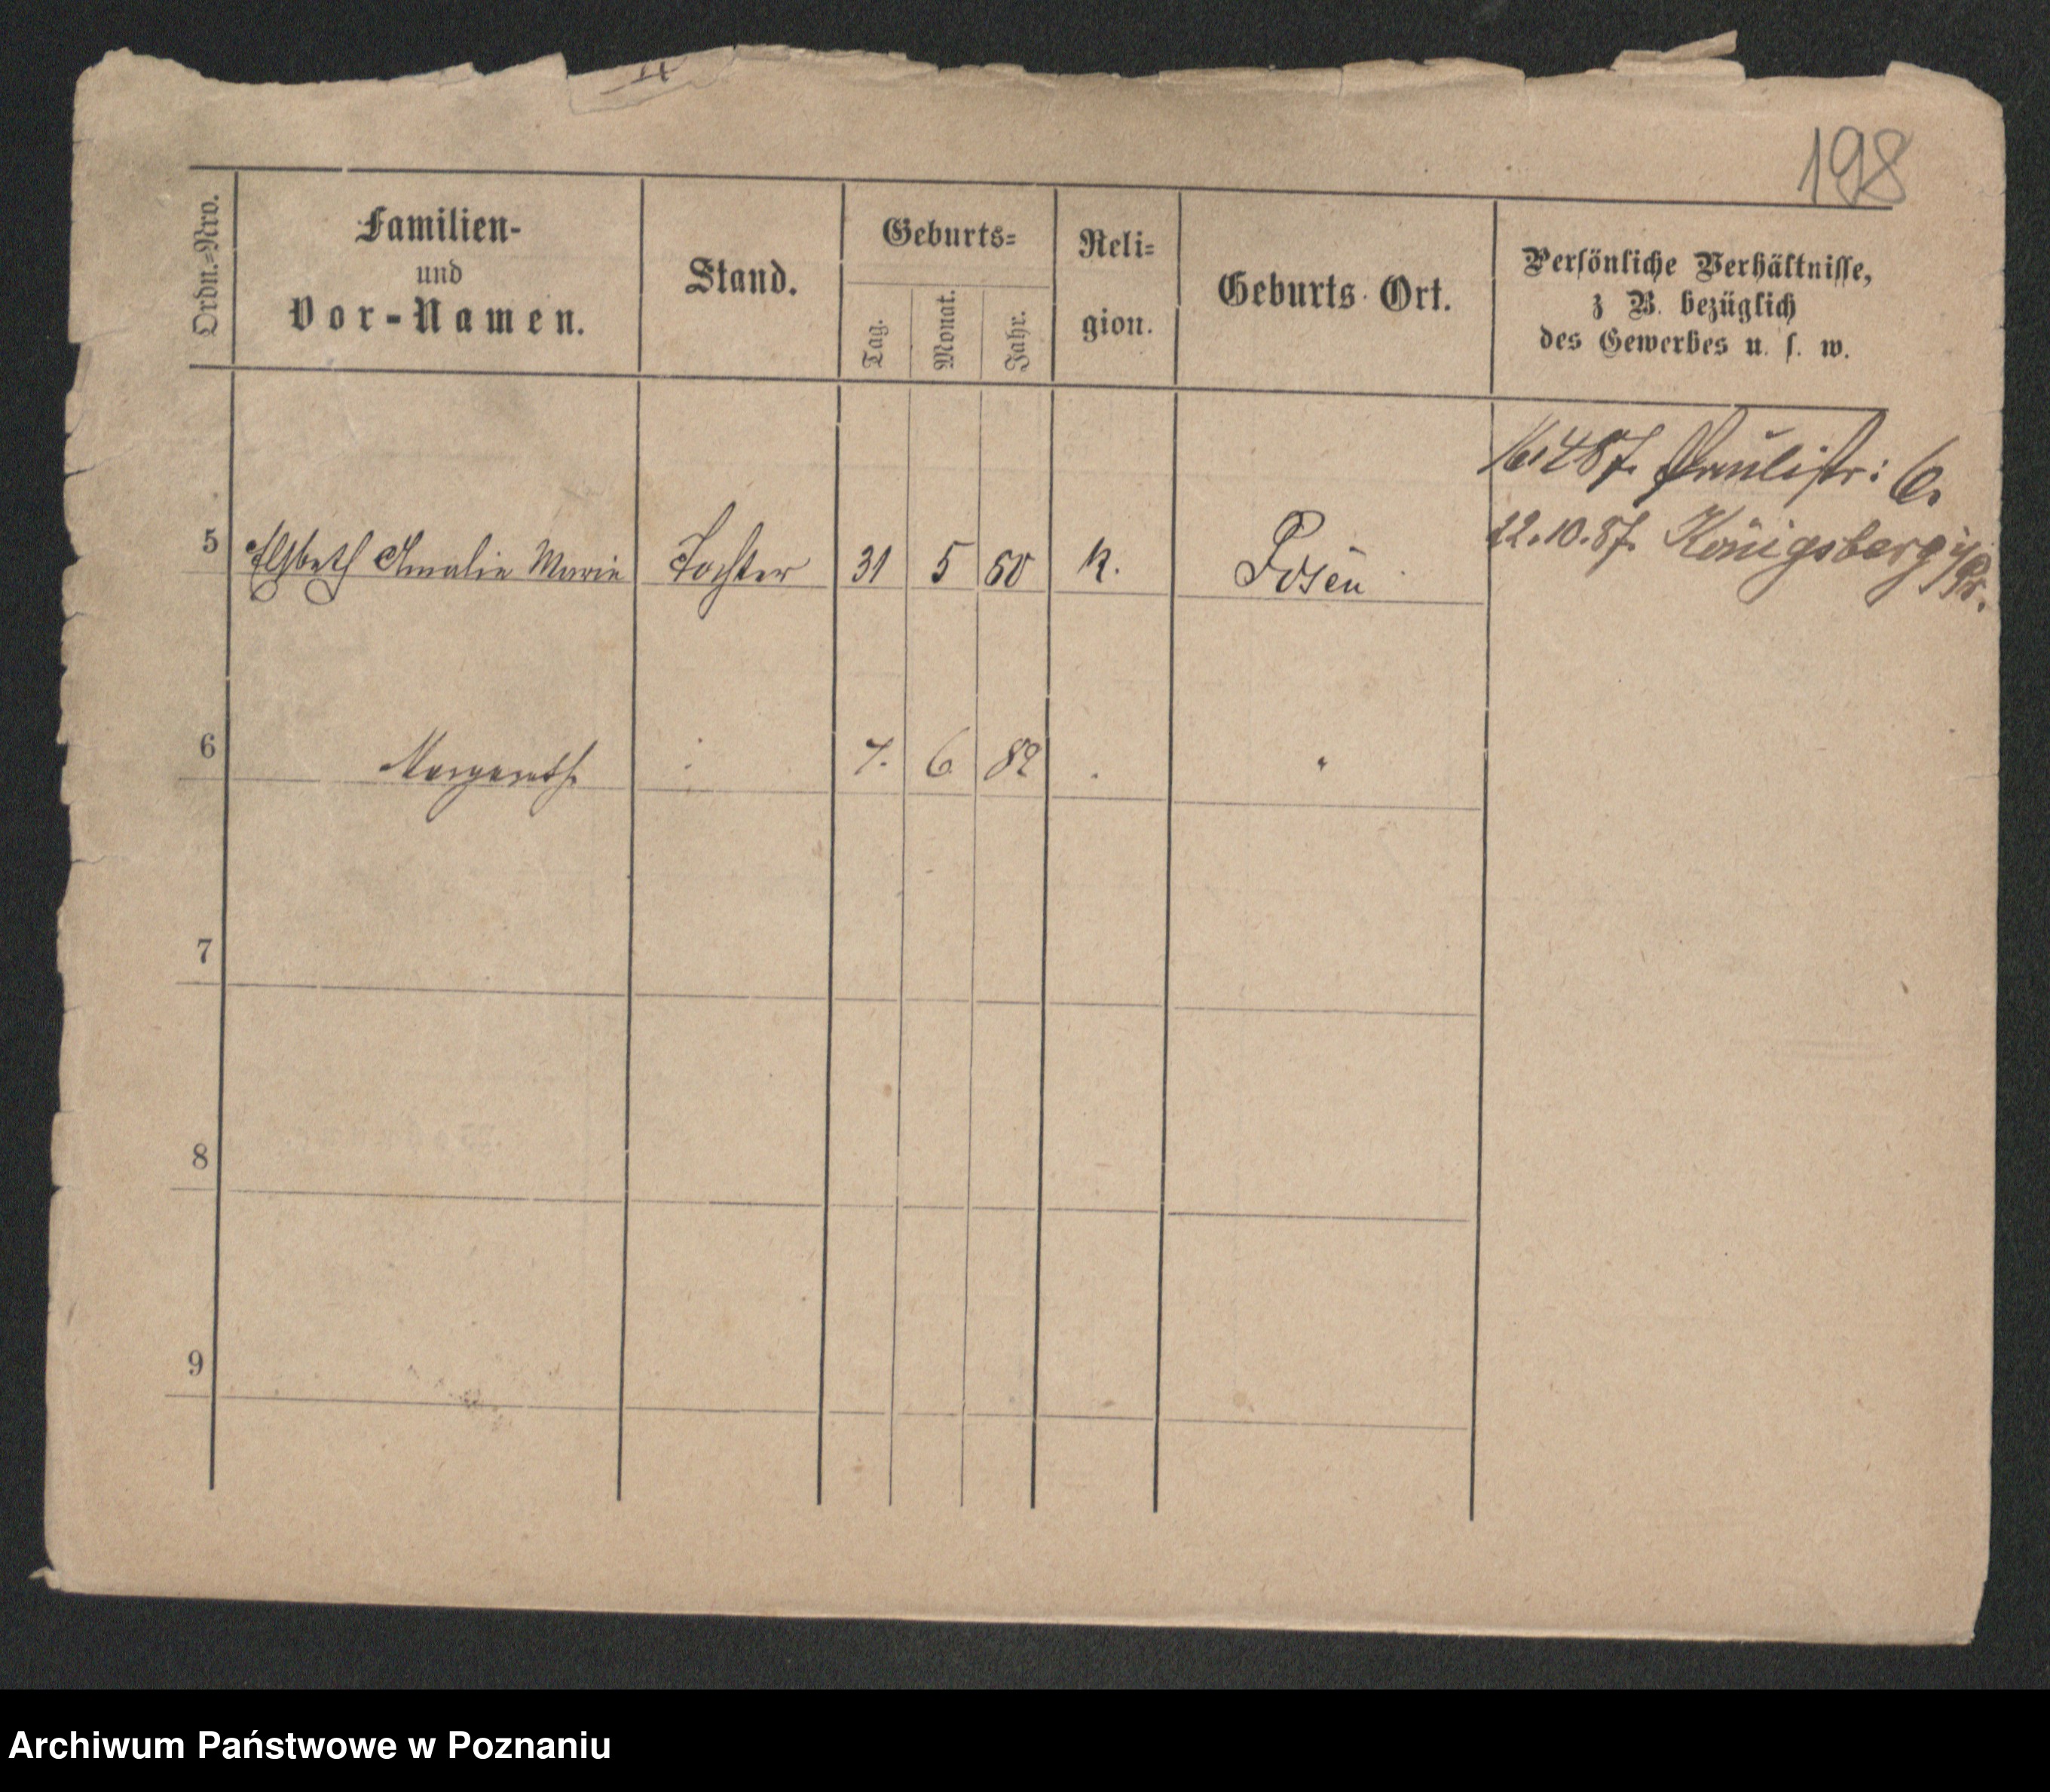 198
Ordn.-Nro.
Familien-
und
Vor-Namen.
Stand.
Geburts-
Tag.
Monat.
Jahr.
Reli-
gion.
Geburts Ort.
Persönliche Verhältnisse,
z B. bezüglich
des Gewerbes u. s. w.
16.4.87. Paulistr: 6.
22.10.87. Königsberg i/Pr.
5 Elsbeth Amalie Marie Tochter 31 5 80 k. Posen
6 Margareth. 7. 6 82
7
8
9
Archiwum Państwowe w Poznaniu